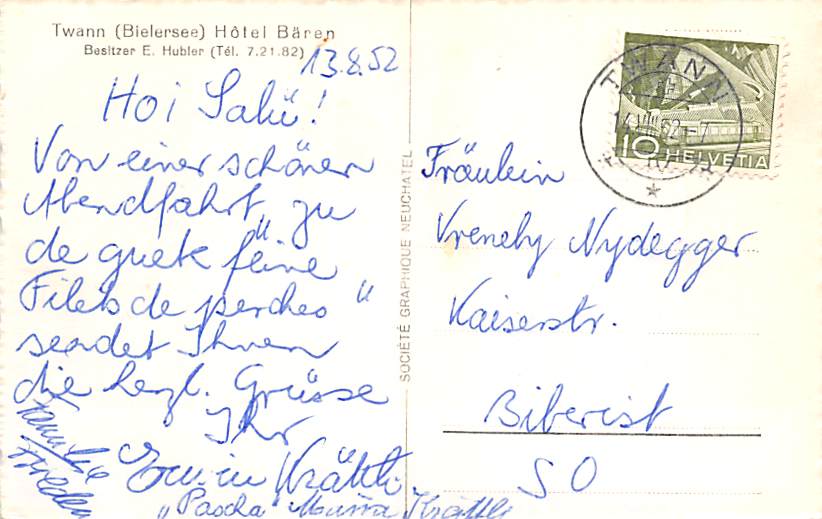 Twann (Bielersee) Hôtel Bären
Besitzer E. Hubler (Tél. 7.21.82)
13.8.52
Hoi Salü!
Von einer schönen
Abendfahrt „ zu
de guete feine
Filets de perches "
sendet Ihnen
die herzl. Grüsse
Ihr
Erwin Krättli
„Pascha" Krättli
Familie
SOCIÉTÉ GRAPHIQUE NEUCHATEL
TWANN
14.VIII.52.-7
10 HELVETIA
Fräulein
Vrenely Nydegger
Kaiserstr.
Biberist
SO